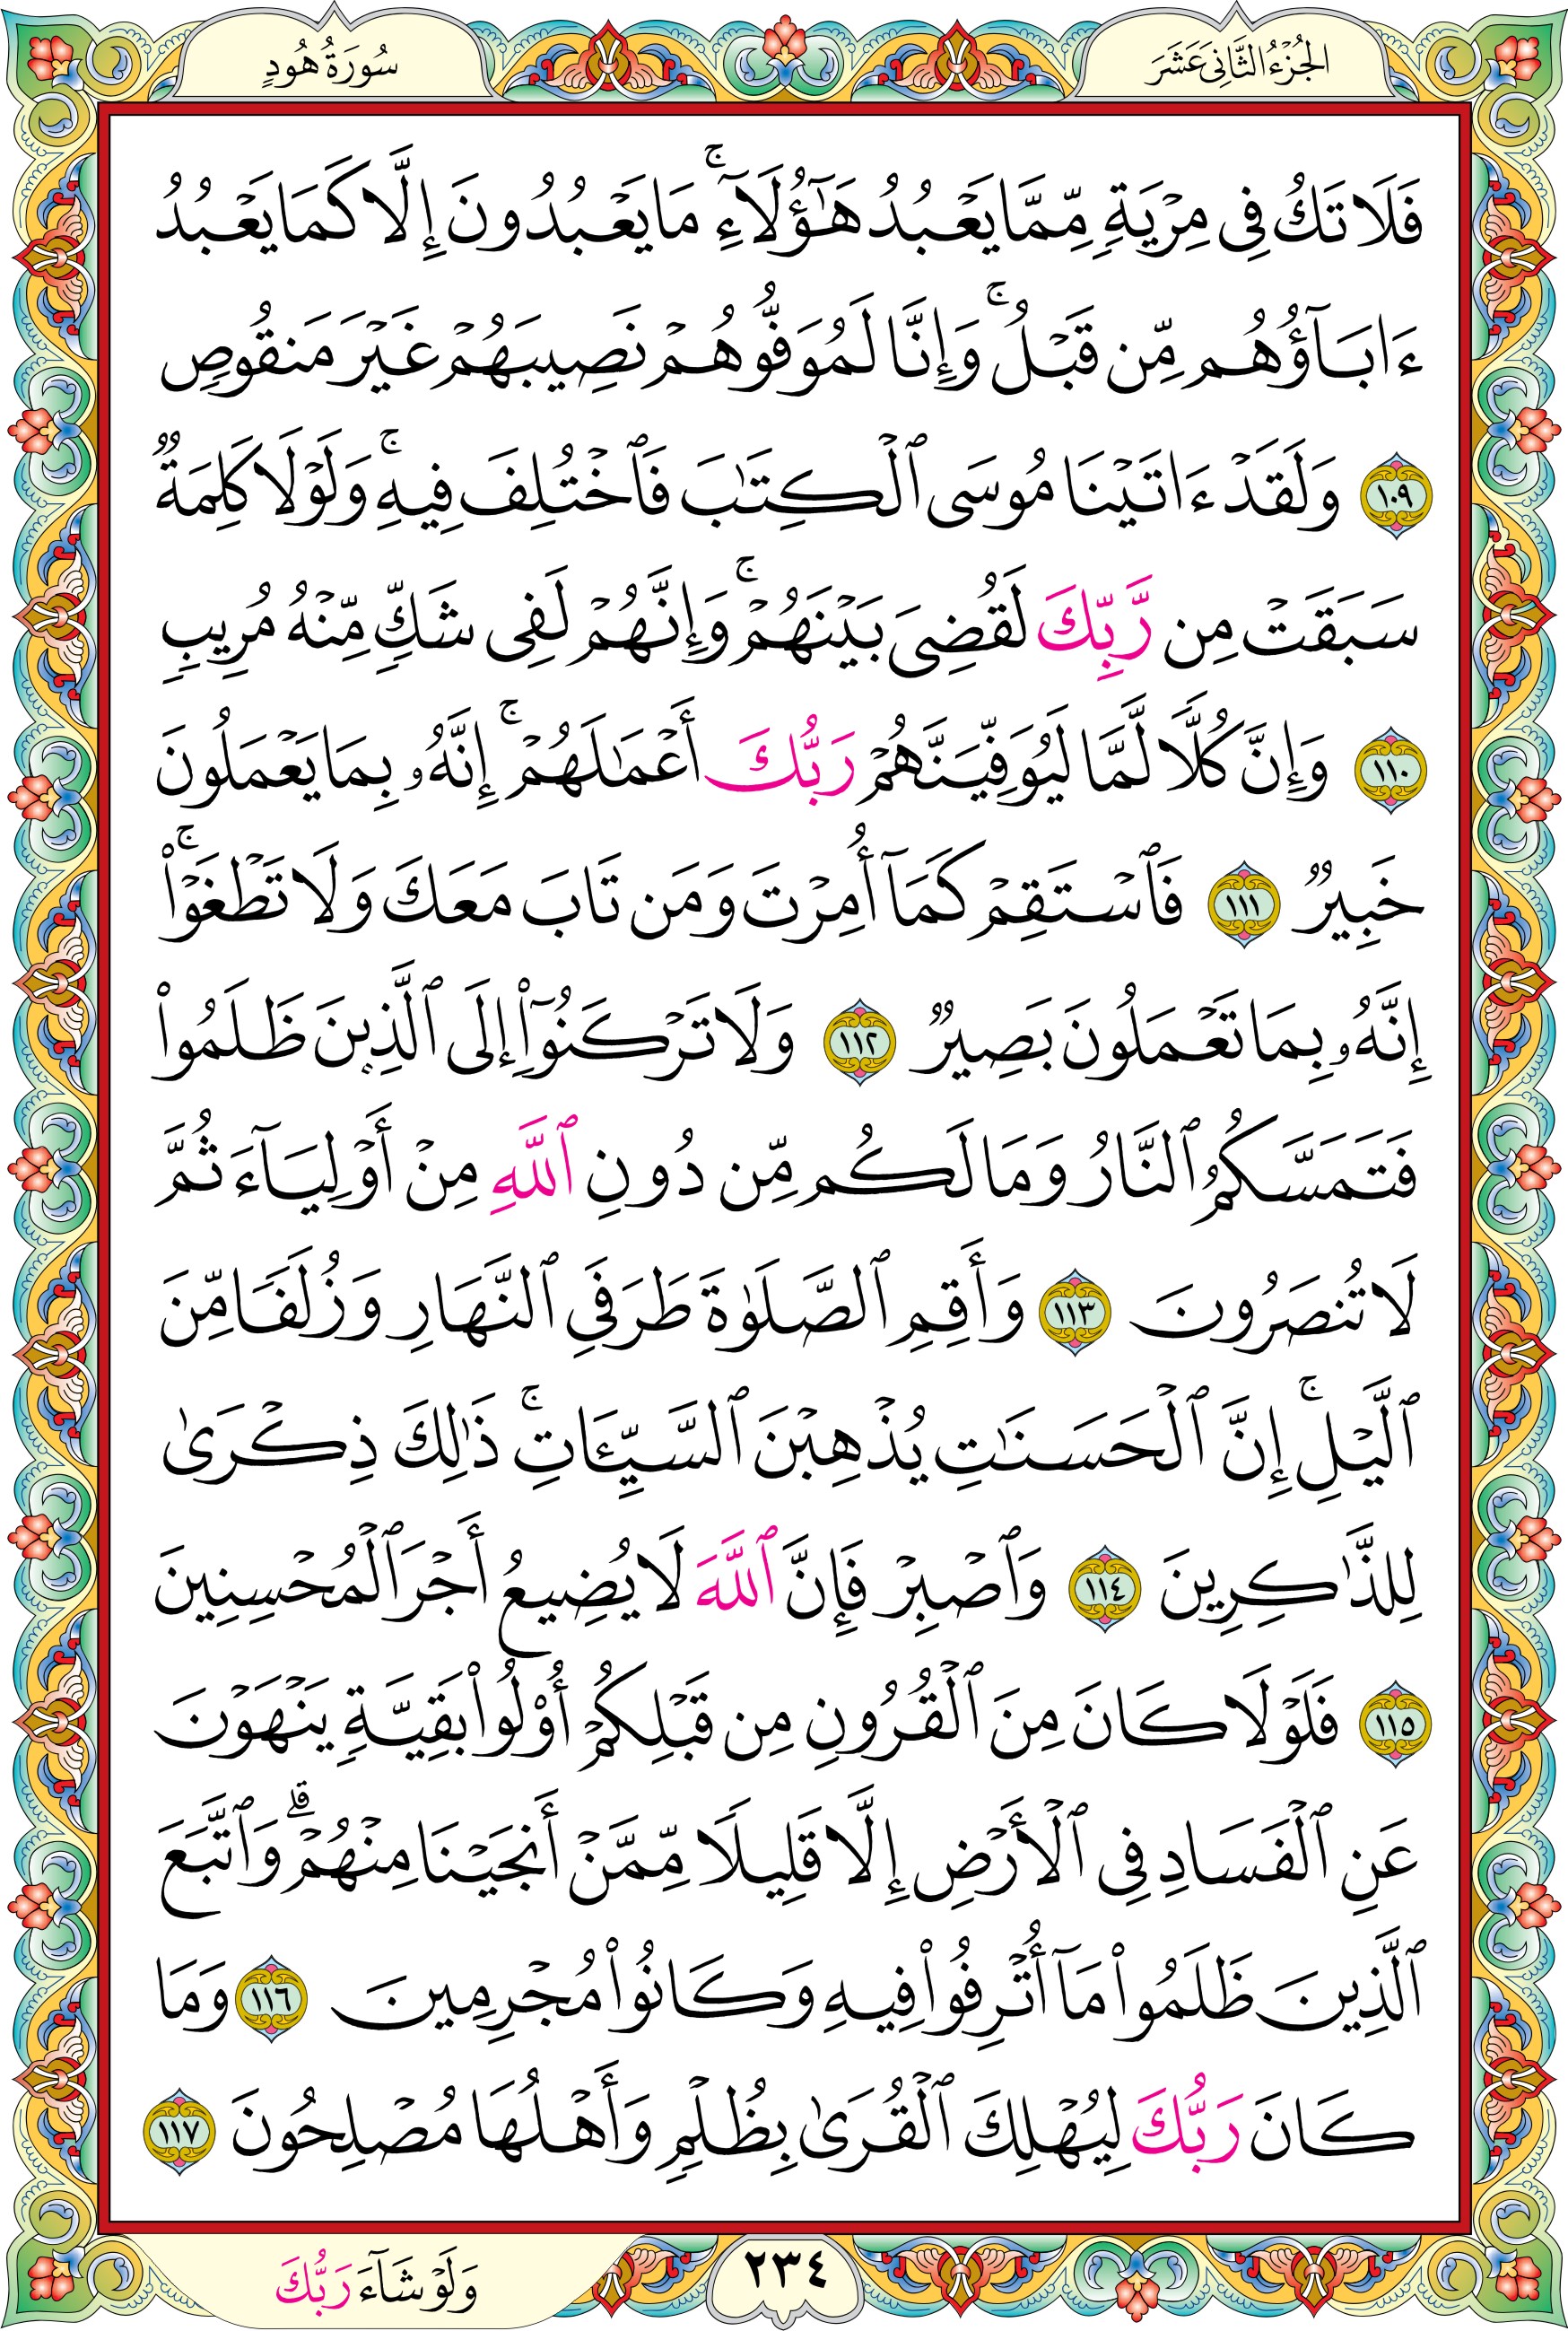 الجُزْءُ الثَّانِي عَشَرَ
سُورَةُ هُودٍ
فَلَا تَكُ فِى مِرْيَةٍ مِّمَّا يَعْبُدُ هَٰٓؤُلَآءِ ۚ مَا يَعْبُدُونَ إِلَّا كَمَا يَعْبُدُ
ءَابَآؤُهُم مِّن قَبْلُ ۚ وَإِنَّا لَمُوَفُّوهُمْ نَصِيبَهُمْ غَيْرَ مَنقُوصٍ
١٠٩ وَلَقَدْ ءَاتَيْنَا مُوسَى ٱلْكِتَٰبَ فَٱخْتُلِفَ فِيهِ ۚ وَلَوْلَا كَلِمَةٌ
سَبَقَتْ مِن رَّبِّكَ لَقُضِىَ بَيْنَهُمْ ۚ وَإِنَّهُمْ لَفِى شَكٍّ مِّنْهُ مُرِيبٍ
١١٠ وَإِنَّ كُلًّا لَّمَّا لَيُوَفِّيَنَّهُمْ رَبُّكَ أَعْمَٰلَهُمْ ۚ إِنَّهُۥ بِمَا يَعْمَلُونَ
خَبِيرٌ ١١١ فَٱسْتَقِمْ كَمَآ أُمِرْتَ وَمَن تَابَ مَعَكَ وَلَا تَطْغَوْا۟ ۚ
إِنَّهُۥ بِمَا تَعْمَلُونَ بَصِيرٌ ١١٢ وَلَا تَرْكَنُوٓا۟ إِلَى ٱلَّذِينَ ظَلَمُوا۟
فَتَمَسَّكُمُ ٱلنَّارُ وَمَا لَكُم مِّن دُونِ ٱللَّهِ مِنْ أَوْلِيَآءَ ثُمَّ
لَا تُنصَرُونَ ١١٣ وَأَقِمِ ٱلصَّلَوٰةَ طَرَفَىِ ٱلنَّهَارِ وَزُلَفًا مِّنَ
ٱلَّيْلِ ۚ إِنَّ ٱلْحَسَنَٰتِ يُذْهِبْنَ ٱلسَّيِّـَٔاتِ ۚ ذَٰلِكَ ذِكْرَىٰ
لِلذَّٰكِرِينَ ١١٤ وَٱصْبِرْ فَإِنَّ ٱللَّهَ لَا يُضِيعُ أَجْرَ ٱلْمُحْسِنِينَ
١١٥ فَلَوْلَا كَانَ مِنَ ٱلْقُرُونِ مِن قَبْلِكُمْ أُو۟لُوا۟ بَقِيَّةٍ يَنْهَوْنَ
عَنِ ٱلْفَسَادِ فِى ٱلْأَرْضِ إِلَّا قَلِيلًا مِّمَّنْ أَنجَيْنَا مِنْهُمْ ۗ وَٱتَّبَعَ
ٱلَّذِينَ ظَلَمُوا۟ مَآ أُتْرِفُوا۟ فِيهِ وَكَانُوا۟ مُجْرِمِينَ ١١٦ وَمَا
كَانَ رَبُّكَ لِيُهْلِكَ ٱلْقُرَىٰ بِظُلْمٍ وَأَهْلُهَا مُصْلِحُونَ ١١٧
٢٣٤
وَلَوْ شَآءَ رَبُّكَ